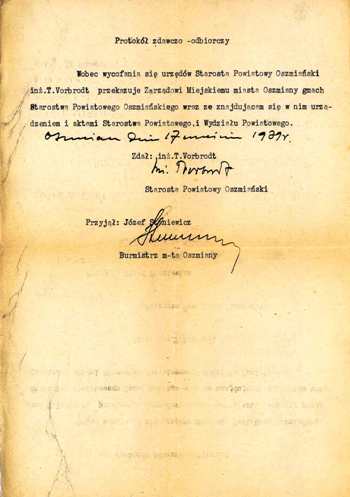 Protokół zdawczo -odbiorczy
Wobec wycofania się urzędów Starosta Powiatowy Oszmiański
inż.T.Vorbrodt przekazuje Zarządowi Miejskiemu miasta Oszmiany gmach
Starostwa Powiatowego Oszmiańskiego wraz ze znajdującem się w nim urzą-
dzeniem i aktami Starostwa Powiatowego.i Wydziału Powiatowego.
Oszmiana dnia 17 września 1939r.
Zdał: inż.T.Vorbrodt
inż. Vorbrodt
Starosta Powiatowy Oszmiański
Przyjął: Józef
Burmistrz m-ta Oszmiany